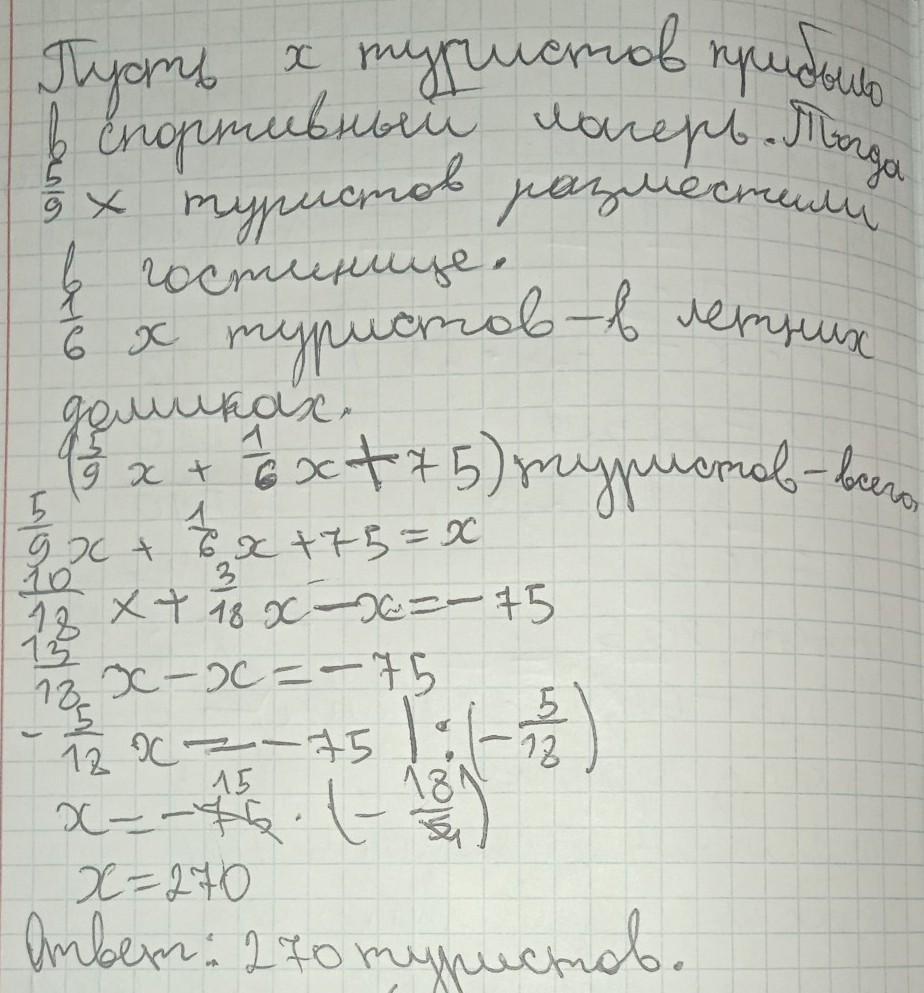 Пусть x туристов прибыло
в спортивный лагерь. Тогда
5/9 x туристов разместили
в гостинице.
1/6 x туристов – в летних
домиках.
(5/9 x + 1/6 x + 75) туристов – всего
5/9 x + 1/6 x + 75 = x
10/18 x + 3/18 x – x = – 75
13/18 x – x = – 75
- 5/18 x = – 75 | : (– 5/18)
15
x = – 75 · (– 18/5 1)
x = 270
Ответ: 270 туристов.